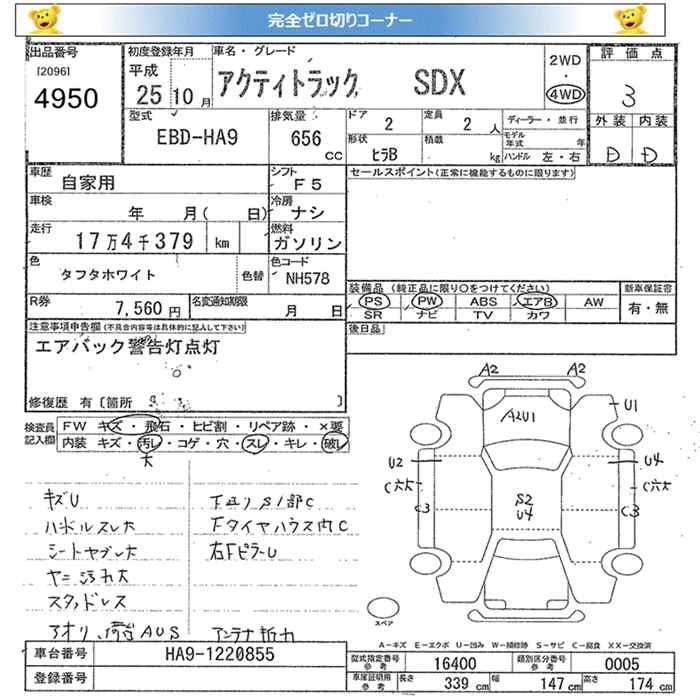 完全ゼロ切りコーナー
出品番号 初度登録年月 車名・グレード 2WD 評価点
[2096] 平成 ・
4950 25 10月 アクティトラック SDX 4WD 3
型式 排気量 ドア 2 定員 2 人 ディーラー・並行 外装 内装
EBD-HA9 656 cc 形状 ヒラB 積載 kg モデル年式 年 D D
ハンドル 左・右
車歴 自家用 シフト F5 セールスポイント(正常に機能するものに限ります)
車検 年 月( 日) 冷房 ナシ
走行 17万4千379 km 燃料 ガソリン
色 タフタホワイト 色替 色コード NH578
装備品(純正品に限り○をつけてください) 新車保証書
R券 7,560円 名変通知期限 月 日 PS PW ABS エアB AW 有・無
SR ナビ TV カワ
注意事項申告欄(不具合内容等は具体的に記入して下さい) 後日品
エアバック警告灯点灯
修復歴 有〔箇所 〕
検査員記入欄 FW キズ・飛石・ヒビ割・リペア跡・×要
内装 キズ・汚レ・コゲ・穴・スレ・キレ・破レ
大
キズU 下廻りS1部C
ハンドルスレ大 Fタイヤハウス内C
シートヤブレ大 右FピラーU
ヤニ汚れ大
スタッドレス
アオリ、荷台AUS アンテナ折れ
A2 A2
A2U1 U1
U2 U4
C穴大 S2 C穴大
C3 U4 C3
スペア
A−キズ E−エクボ U−凹み W−補修跡 S−サビ C−腐食 XX−交換済
車台番号 HA9-1220855 型式指定番号 参考 16400 類別区分番号 参考 0005
登録番号 車庫証明用 参考 長さ 339 cm 幅 147 cm 高さ 174 cm